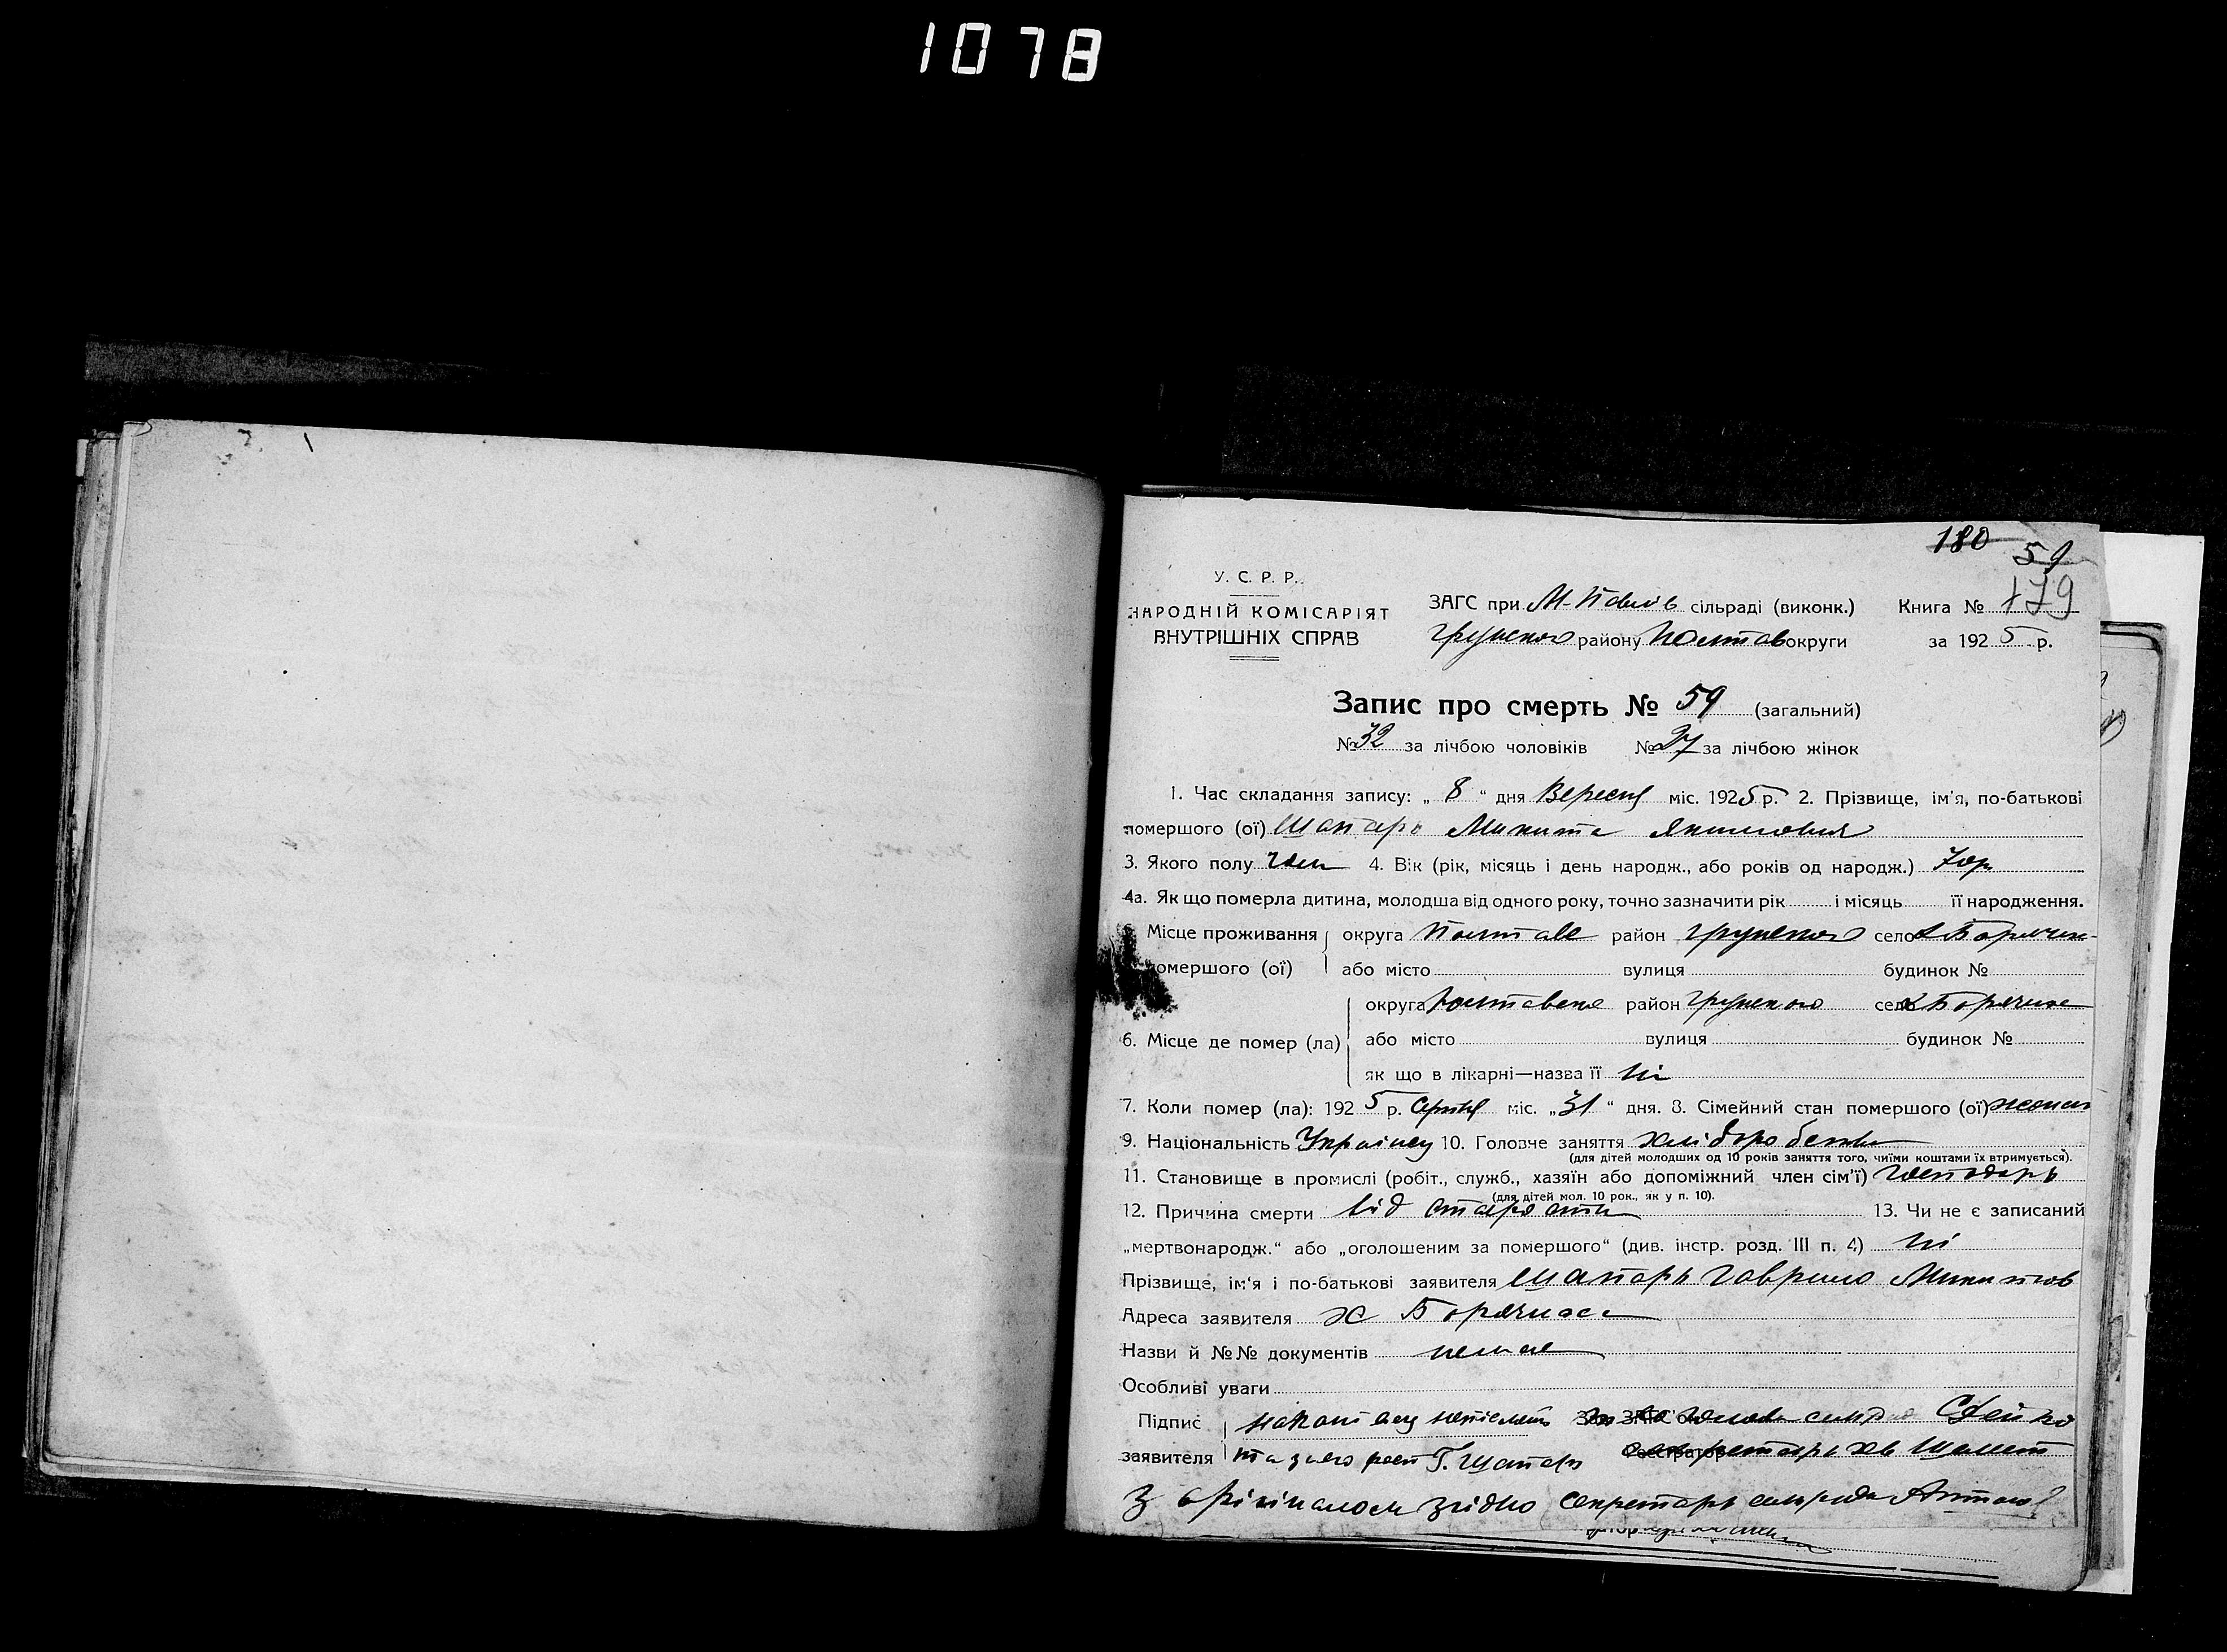 1078
180
59
179
У. С. Р. Р.
НАРОДНІЙ КОМІСАРІЯТ
ВНУТРІШНІХ СПРАВ
ЗАГС при М-Павлів сільраді (виконк.) Книга №
Грунского району Полтав округи за 1925 р.
Запис про смерть № 59 (загальний)
№ 32 за лічбою чоловіків № 27 за лічбою жінок
1. Час складання запису: „ 8 “ дня Вересня міс. 1925 р. 2. Прізвище, ім'я, по-батькові
помершого (ої) Шапарь Микита Якимович
3. Якого полу чол 4. Вік (рік, місяць і день народж., або років од народж.) 70 р
4а. Як що померла дитина, молодша від одного року, точно зазначити рік і місяць її народження.
Місце проживання округа Полтаве район Грунского село х Борячка
помершого (ої) або місто вулиця будинок №
округа Полтавске район Грунского село х Борячка
6. Місце де помер (ла) або місто вулиця будинок №
як що в лікарні—назва її ні
7. Коли помер (ла): 1925 р. Серпня міс. „31“ дня. 8. Сімейний стан помершого (ої) жонат
9. Національність Українец 10. Головче заняття хліборобство
(для дітей молодших од 10 років заняття того, чиїми коштами їх втримується).
11. Становище в промислі (робіт., служб., хазяїн або допоміжний член сім'ї) господарь
(для дітей мол. 10 рок., як у п. 10).
12. Причина смерти від старости 13. Чи не є записаний
„мертвонародж.“ або „оголошеним за помершого“ (див. інстр. розд. III п. 4) ні
Прізвище, ім'я і по-батькові заявителя Шапарь Гаврило Микитов
Адреса заявителя х Борячка
Назви й №№ документів немае
Особливі уваги
Підпис Зав. ЗАГС'ом голова сільради
заявителя та за его роспи Г. Шапарь Реєстратор секретарь
З орігіналом згідно секретарь сільради